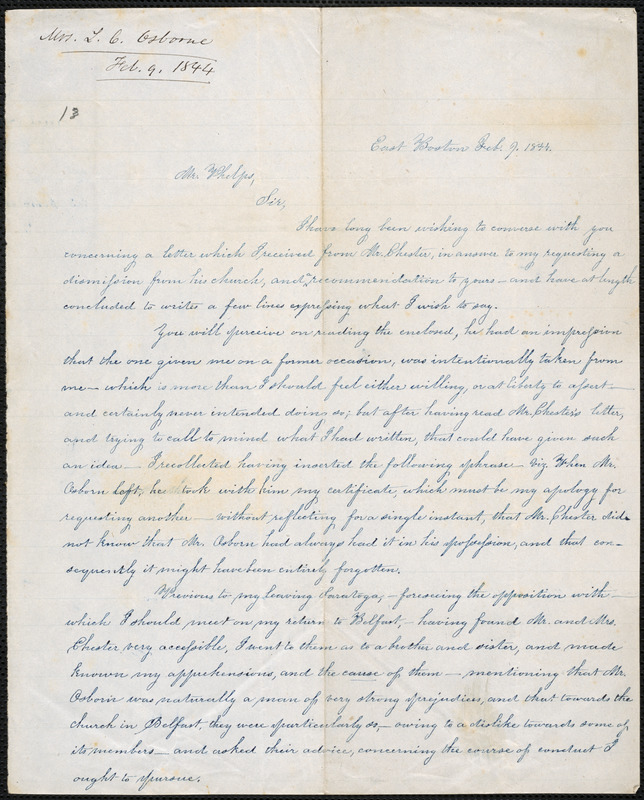 Mrs. L. C. Osborne
Feb. 9. 1844
13
East Boston Feb. 9. 1844.
Mr. Phelps,
Sir,
I have long been wishing to converse with you
concerning a letter which I received from Mr. Chester, in answer to my requesting a
dismission from his church, and recommendation to yours — and have at length
concluded to write a few lines expressing what I wish to say.
You will perceive on reading the enclosed, he had an impression
that the one given me on a former occasion, was intentionally taken from
me — which is more than I should feel either willing, or at liberty to assert —
and certainly never intended doing so; but after having read Mr. Chester's letter,
and trying to call to mind what I had written, that could have given such
an idea — I recollected having inserted the following phrase — Viz. When Mr.
Osborn left, he took with him my certificate, which must be my apology for
requesting another — without reflecting for a single instant, that Mr. Chester did
not know that Mr. Osborn had always had it in his possession, and that con-
sequently it might have been entirely forgotten.
Previous to my leaving Saratoga, — foreseeing the opposition with
which I should meet on my return to Belfast, — having found Mr. and Mrs.
Chester very accessible, I went to them as to a brother and sister, and made
known my apprehensions, and the cause of them — mentioning that Mr.
Osborn was naturally a man of very strong prejudices, and that towards the
church in Belfast, they were particularly so, — owing to a dislike towards some of
its members — and asked their advice, concerning the course of conduct I
ought to pursue.